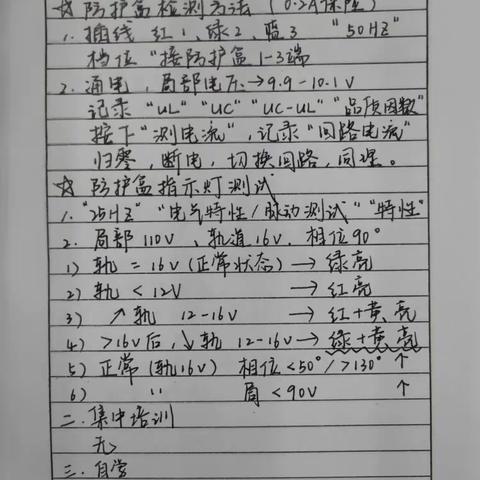 ☆防护盒检测方法(0.2A保险)
1. 插线 红1, 绿2, 蓝3 "50HZ"
档位"接防护盒1-3端
2. 通电, 局部电压→9.9-10.1V
记录"UL" "UC" "UC-UL" "品质因数"
按下"测电流", 记录"回路电流"
归零, 断电, 切换回路, 同理。
☆防护盒指示灯测试
1. "25HZ" "电气特性/脉动测试" "特性"
2. 局部110V, 轨道16V, 相位90°
1) 轨=16V(正常状态)→绿亮
2) 轨<12V →红亮
3) ↗轨 12-16V →红+黄亮
4) >16V后,↘轨 12-16V→绿+黄亮
5) 正常(轨16V) 相位<50°/>130° ↑
6) 〃 局<90V ↑
二. 集中培训
无
三. 自学